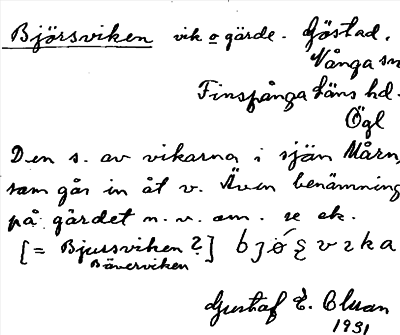 Björsviken vik o gärde. Göstad.
Vånga sn
Finspånga läns hd.
Ögl
Den s. av vikarna i sjön Mårn,
som går in åt v. Även benämning
på gärdet n. v. om. se ek.
[= Bjursviken ?]
Bäverviken
Gustaf E. Cluan
1931